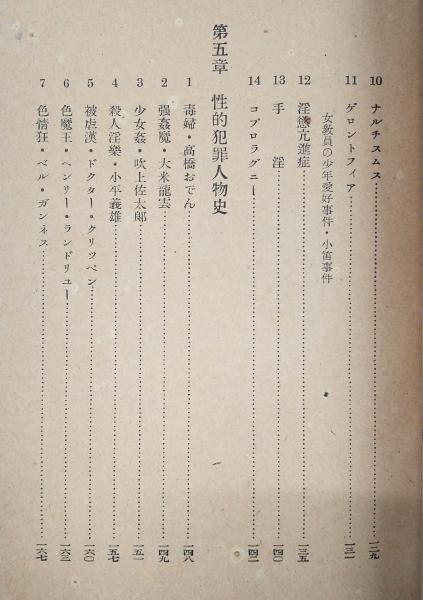 10 ナルチスムス 一二九
11 ゲロントフィア 一三一
女教員の少年愛好事件・小笛事件
12 淫慾亢進症 一三五
13 手淫 一四〇
14 コプロラグニー 一四二
第五章 性的犯罪人物史
1 毒婦・高橋おでん 一四八
2 强姦魔・大米龍雲 一四九
3 少女姦・吹上佐太郎 一五一
4 殺人淫樂・小平義雄 一五七
5 被虐漢・ドクター・クリツペン 一六〇
6 色魔王・ヘンリー・ランドリユー 一六三
7 色情狂・ベル・ガンネス 一六七